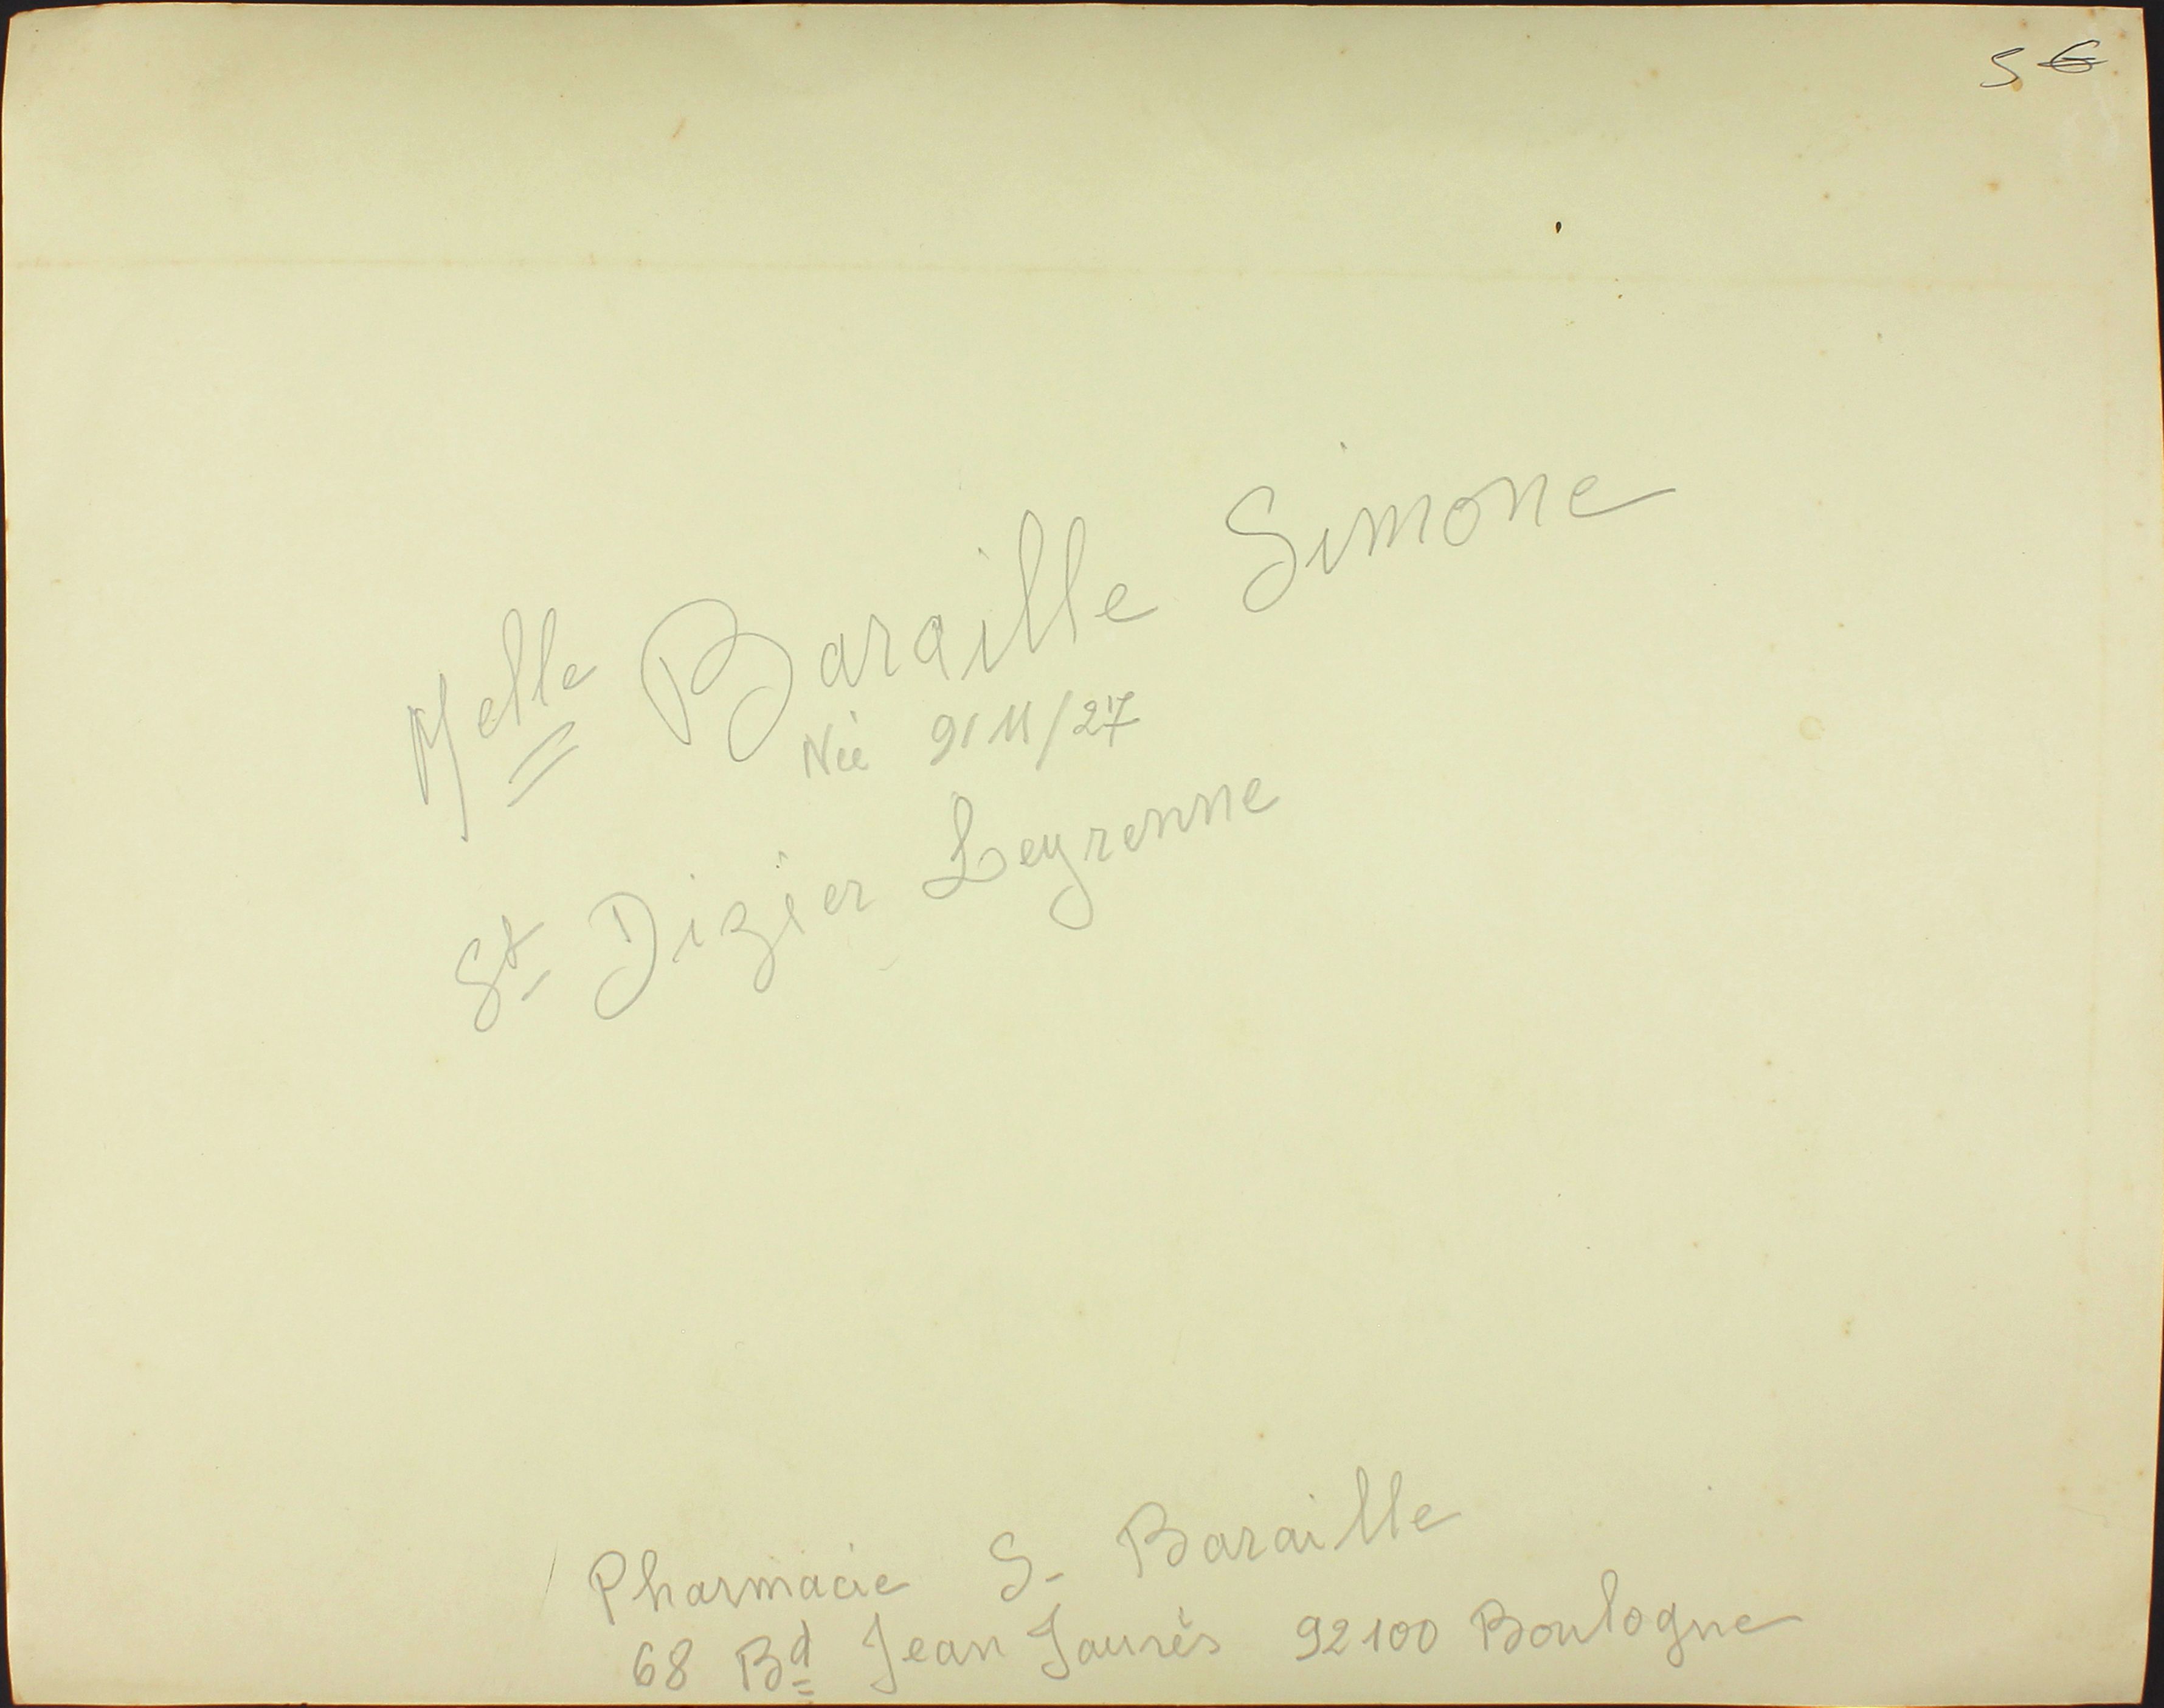 5 €
Melle Baraille Simone
Née 9/11/27
St Dizier Leyrenne
Pharmacie S. Baraille
68 Bd Jean Jaurès 92100 Boulogne